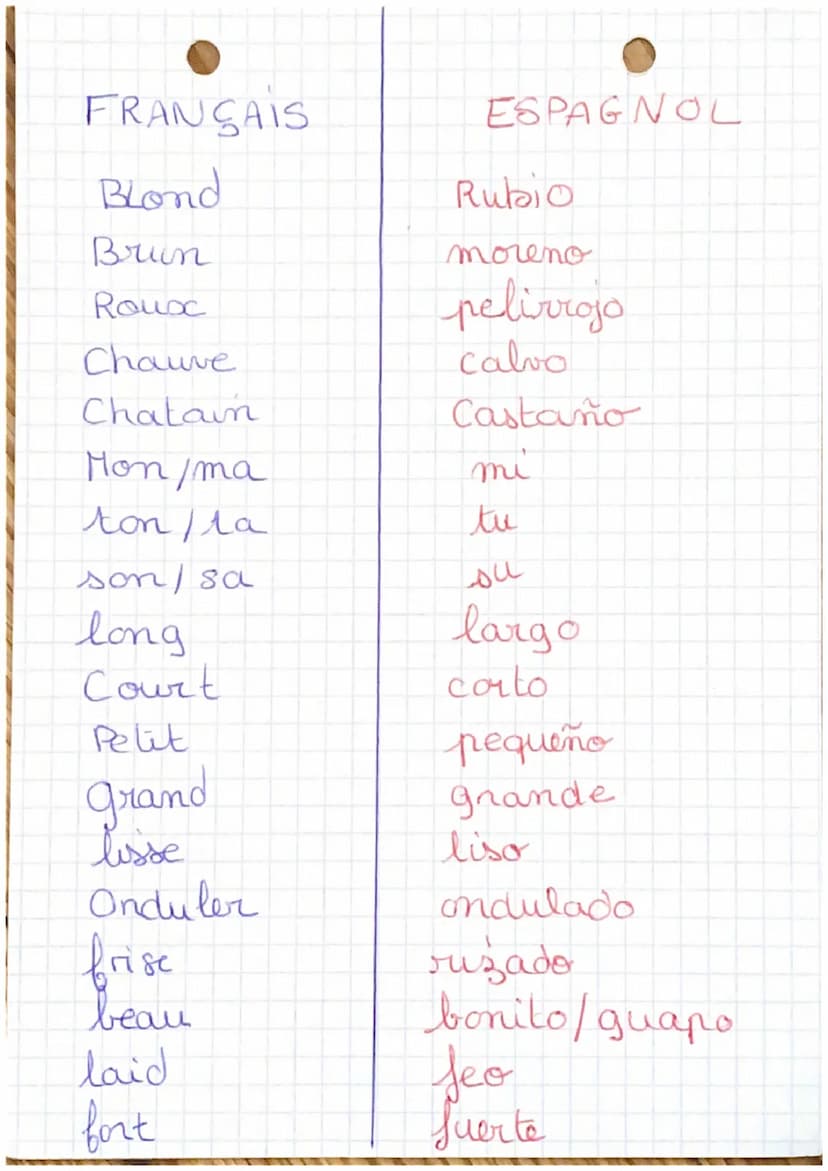 FRANÇAIS ESPAGNOL
Blond Rubio
Brun moreno
Roux pelirrojo
Chauve calvo
Chatain Castaño
Mon/ma mi
ton/ta tu
son/sa su
long largo
Court corto
Petit pequeño
grand grande
lisse liso
Onduler ondulado
frise ruzado
beau bonito/guapo
laid feo
fort fuerte